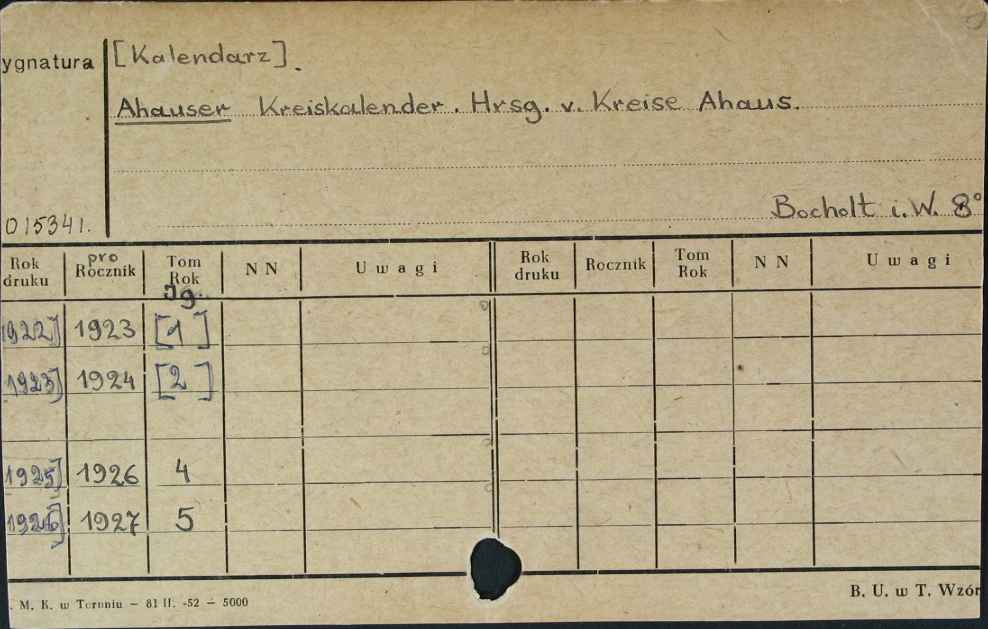 ygnatura
[Kalendarz].
Ahauser Kreiskalender. Hrsg. v. Kreise Ahaus.
Bocholt i. W. 8°
015341.
Rok druku pro Rocznik Tom Rok Jg. N N Uwagi Rok druku Rocznik Tom Rok N N Uwagi
1922] 1923 [1]
1923] 1924 [2]
1925] 1926 4
1926] 1927 5
. M. K. w Toruniu – 81 II. -52 – 5000
B. U. w T. Wzór